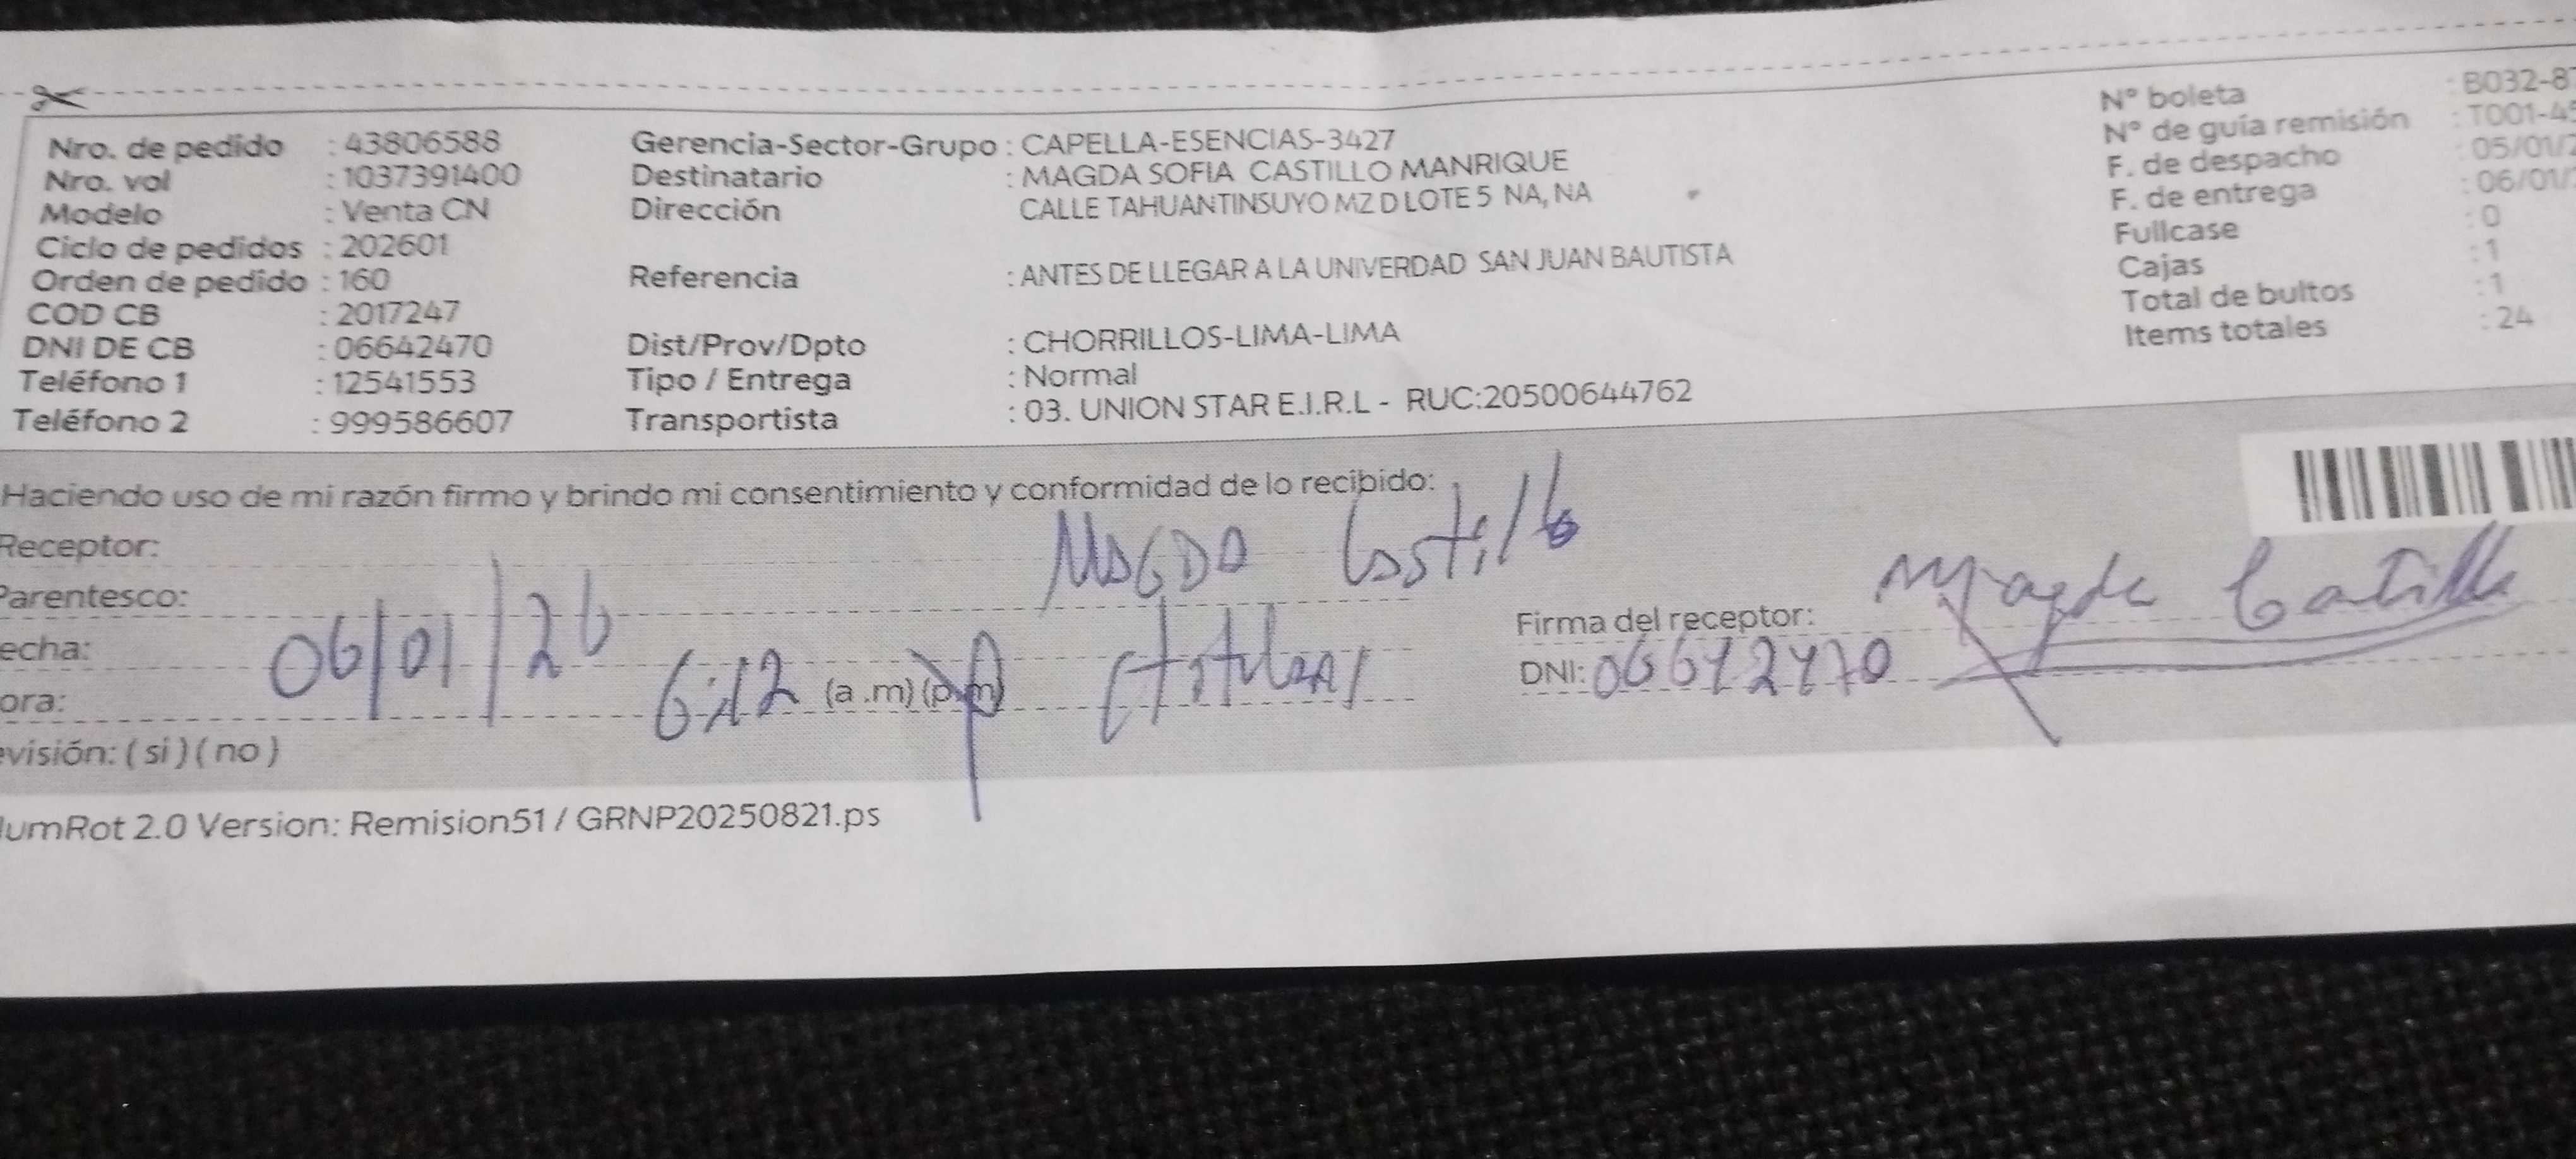 Nro. de pedido : 43806588 Gerencia-Sector-Grupo : CAPELLA-ESENCIAS-3427 N° boleta : B032-8
Nro. vol : 1037391400 Destinatario : MAGDA SOFIA CASTILLO MANRIQUE N° de guía remisión : T001-4
Modelo : Venta CN Dirección CALLE TAHUANTINSUYO MZ D LOTE 5 NA, NA F. de despacho : 05/01/2
Ciclo de pedidos : 202601 F. de entrega : 06/01/
Orden de pedido : 160 Referencia : ANTES DE LLEGAR A LA UNIVERDAD SAN JUAN BAUTISTA Fullcase : 0
COD CB : 2017247 Cajas : 1
DNI DE CB : 06642470 Dist/Prov/Dpto : CHORRILLOS-LIMA-LIMA Total de bultos : 1
Teléfono 1 : 12541553 Tipo / Entrega : Normal Items totales : 24
Teléfono 2 : 999586607 Transportista : 03. UNION STAR E.I.R.L - RUC:20500644762
Haciendo uso de mi razón firmo y brindo mi consentimiento y conformidad de lo recibido:
Receptor: MAGDA Castillo
Parentesco: (titular)
echa: 06/01/26 Firma del receptor: Magda Castillo
ora: 6:12 (a.m) (p.m) DNI: 06642470
evisión: ( si ) ( no )
umRot 2.0 Version: Remision51 / GRNP20250821.ps